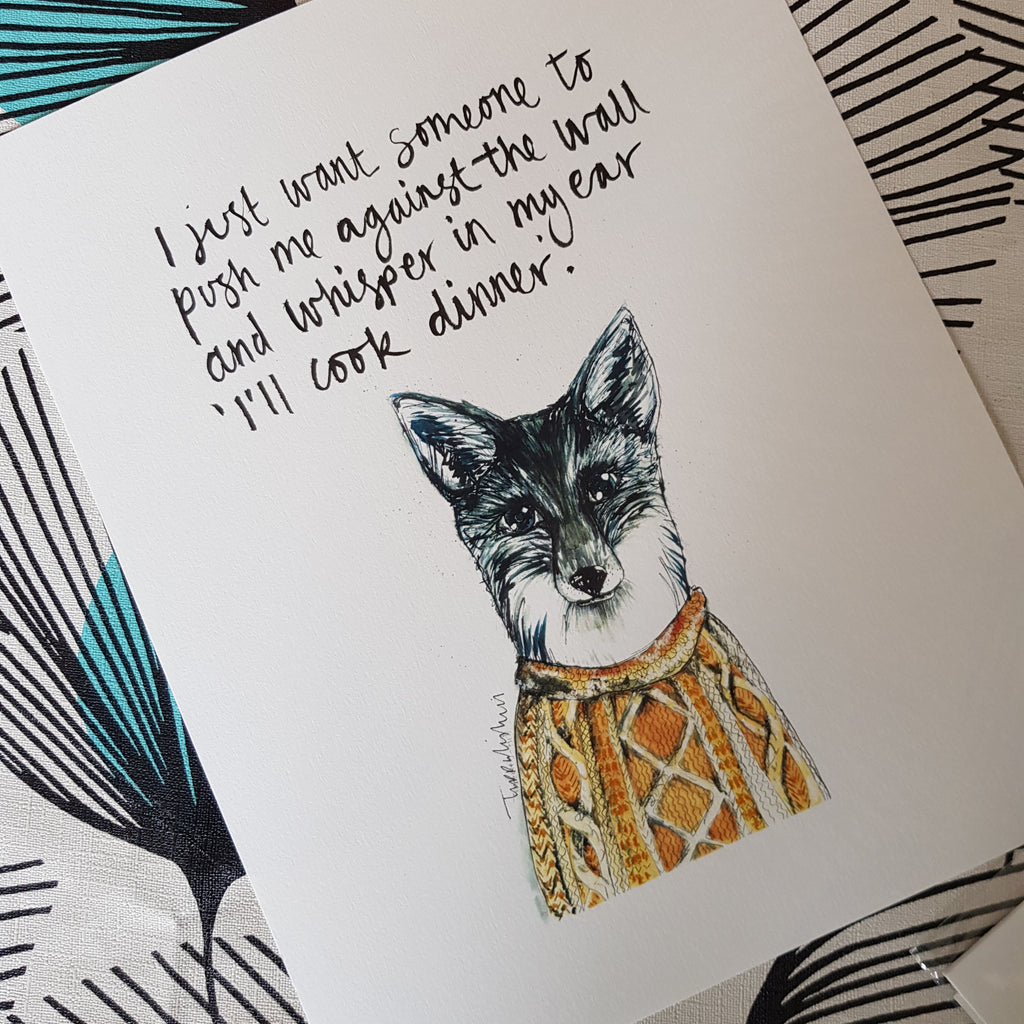 I just want someone to
push me against the wall
and whisper in my ear
'I'll cook dinner'.